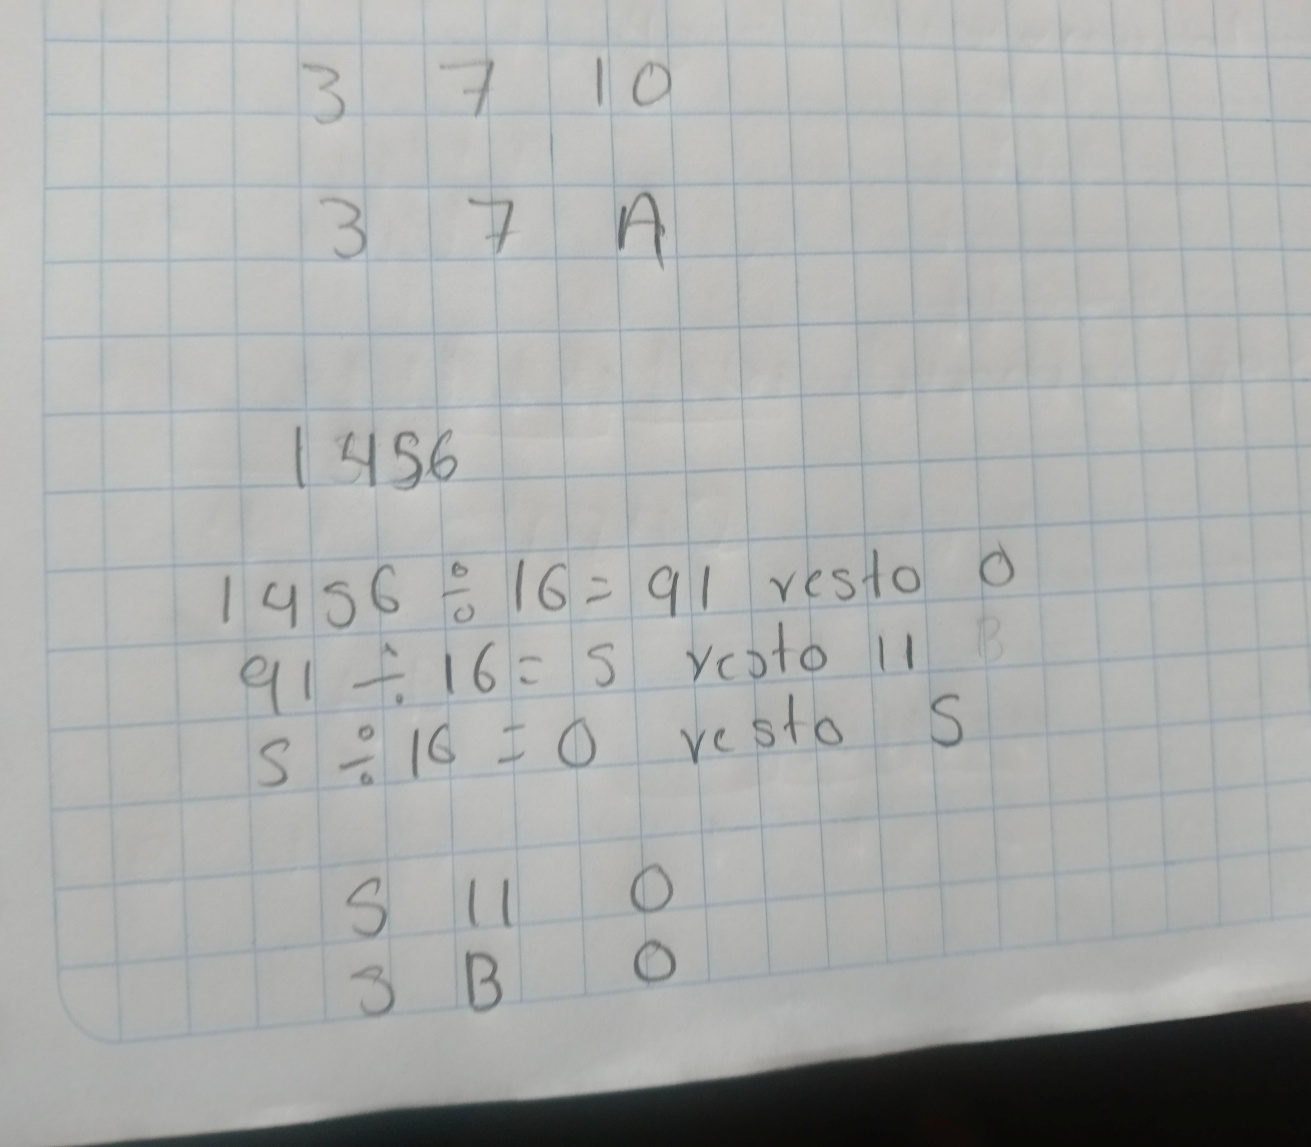 3 7 10
3 7 A
1456
1456 ÷ 16 = 91 resto 0
91 ÷ 16 = 5 resto 11 B
5 ÷ 16 = 0 resto 5
5 11 0
3 B 0